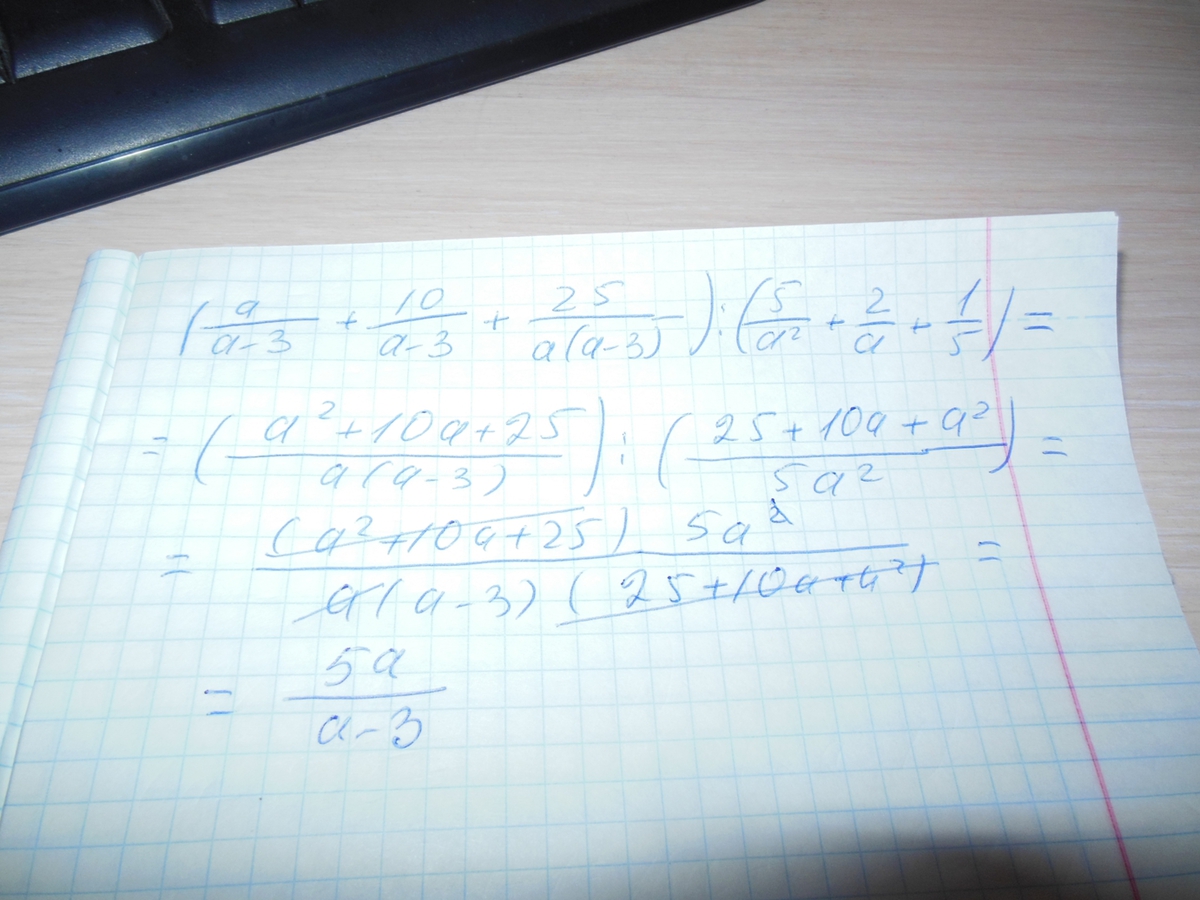 (a/(a-3) + 10/(a-3) + 25/(a(a-3))) : (5/a² + 2/a + 1/5) =
= ((a²+10a+25)/(a(a-3))) : ((25+10a+a²)/(5a²)) =
= ((a²+10a+25) 5a²)/(a(a-3)(25+10a+a²)) =
= 5a/(a-3)